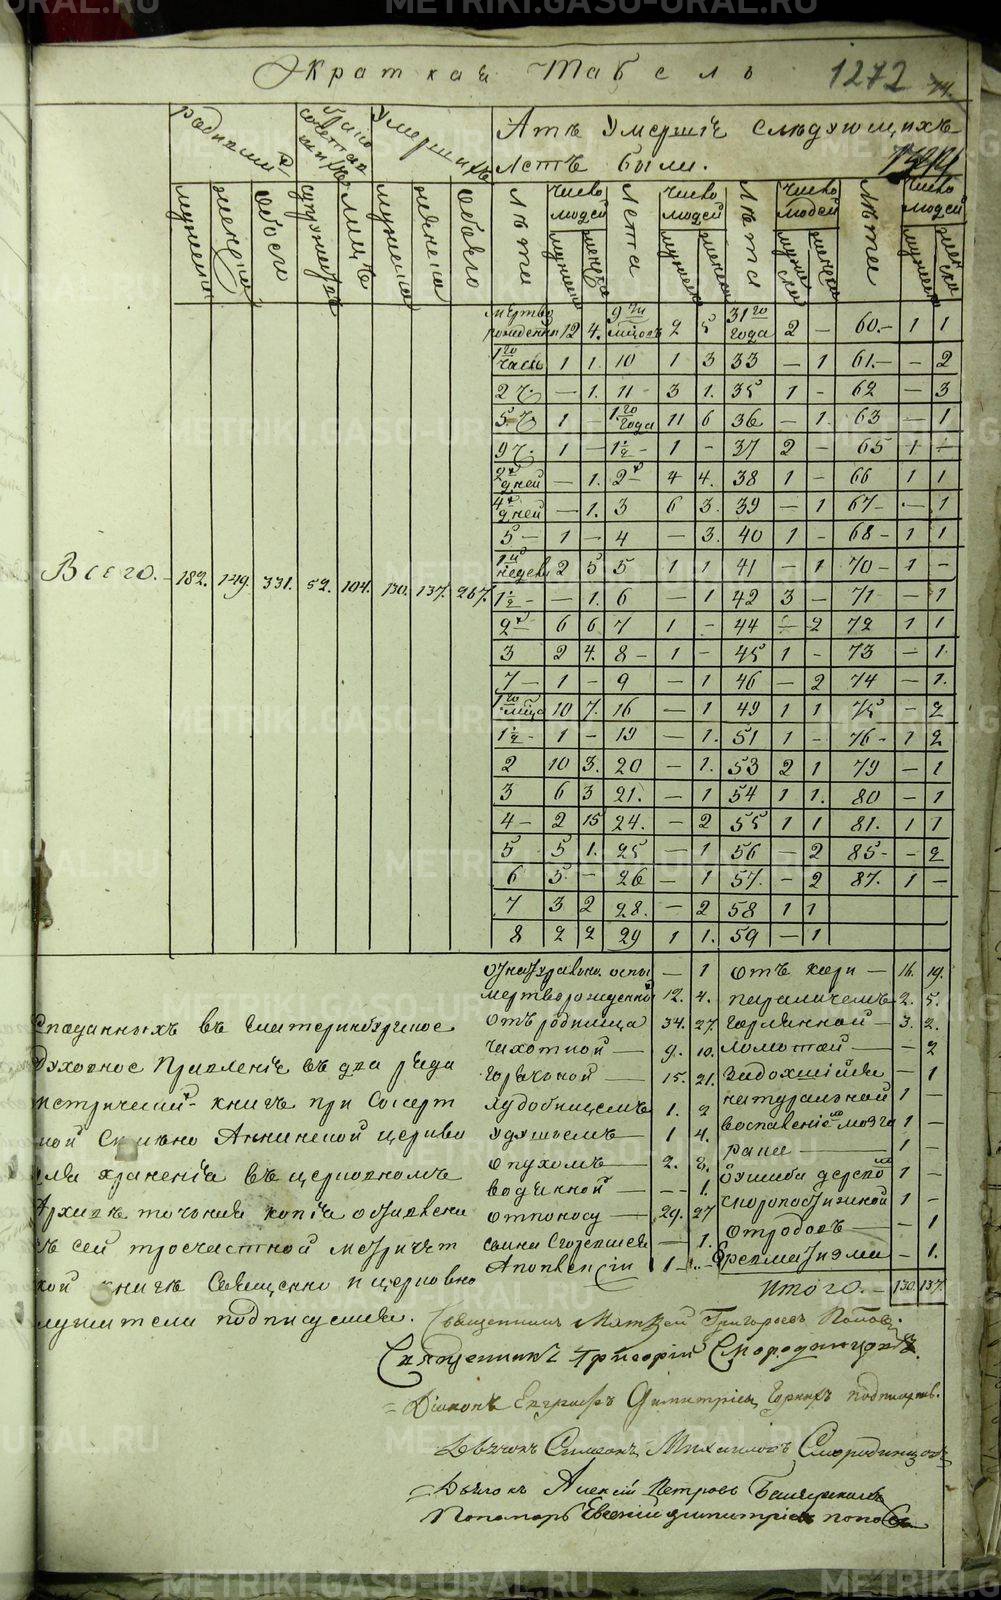 Краткая Табель 1272
родивши[хся] брако сочетав шихъ Умершихъ
А тѣ Умершіе слѣдующихъ
лѣтъ были.
мужеска женска Обоего супружествъ лицъ мужеска женска Обоего
Лѣта число людей Лета число людей Лѣта число людей Лѣта число людей
мужеска женска мужеска женска мужеска женска мужеска женска
мертво рожденны 12 4. 9ти мцовъ 2 5 31го года 2 – 60. – 1 1
1го часъ 1 1. 10 1 3 33 – 1 61. – – 2
2 ч. – 1. 11 3 1. 35 1 – 62 – 3
5. ч 1 – 1го года 11 6 36 – 1. 63 – 1
9 ч. 1 – 1½ – 1 – 37 2 – 65 1 –
2х дней – 1. 2х – 4 4. 38 1 – 66 1 1
4х дней – 1. 3 6 3. 39 – 1 67 – – 1
5 – 1 – 4 – 3. 40 1 – 68 – 1 1
Всего. – 182. 149. 331. 52. 104. 130. 137. 267.
1й недели 2 5 5 1 1 41 – 1 70 – 1 –
1½ – – 1. 6 – 1 42 3 – 71 – 1
2х – 6 6 7 1 – 44 – 2 72 1 1
3 2 4. 8 – 1 – 45 1 – 73 – 1.
7 – 1 – 9 – 1 46 – 2 74 – 1.
1го мца 10 7. 16 – 1 49 1 1 75 – 2
1½ – 1 – 19 – 1. 51 1 – 76 – 1 2
2 10 3. 20 – 1. 53 2 1 79 – 1
3 6 3 21. – 1 54 1 1. 80 – 1
4 – 2 15 24. – 2 55 1 1 81. 1 1
5 5 1. 25 – 1 56 – 2 85 – – 2
6 5. – 26 – 1 57. – 2 87. 1 –
7 3 2 28. – 2 58 1 1
8 2 2 29 1 1. 59 – 1
оспы – 1 отъ кори – 16. 19.
мертворожденной 12. 4. параличемъ 2. 5.
отъ родимца 34. 27 горлянной – 3. 2.
чахотной – 9. 10. ломотой – – 2
горячкой – 15. 21. – 1
худобищемъ 1. 2 натуральной 1 –
удушьемъ – 1 4. воспаленіемъ мозга 1 –
опухомъ – 2. 8. раны – 1 –
водянкой – – – 1. ушиба 1 –
отпоносу – 29. 27 скоропостижной 1 –
– 1. – 1
1 – – – 1.
Итого. – 130. 137.
спаданныхъ въ Екатеринбургское
Духовное Правленіе въ два ряда
метрической книгъ при Сысерт
ской Симеоно Аннинской церкви
для храненія въ церковномъ
Архивѣ точныя копіи
въ сей трсчастной метричес
кой книгѣ Священно и церковно
служители подписуемся. Священникъ Матвей Григорьевъ Поповъ.
Священникъ Григорій Смородинцовъ.
Діаконъ Евграфъ Димитріевъ подписавъ.
Дьячокъ Симеонъ Михаиловъ Смородинцовъ
Дьячокъ Алексій Петровъ
Пономарь Евгеній Димитріевъ Поповъ
METRIKI.GASO-URAL.RU